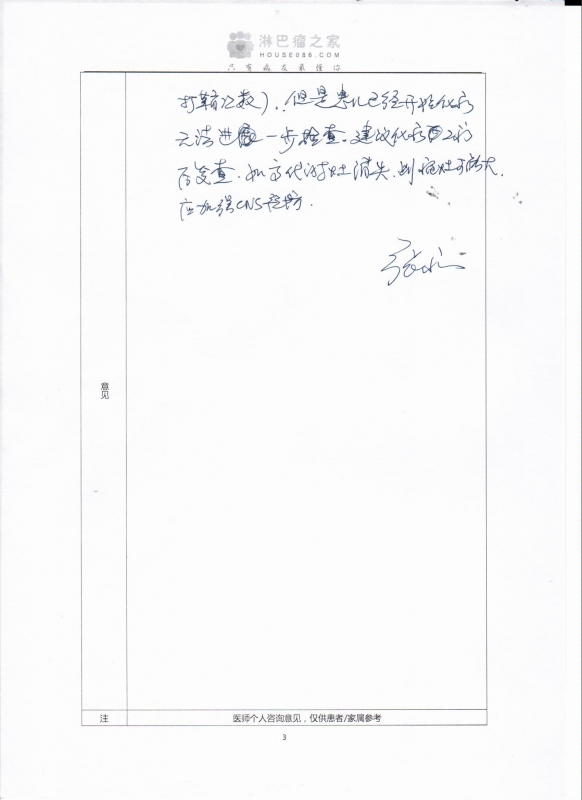 淋巴瘤之家
HOUSE086.COM
只有病友最懂你
打鞘次数)。但是患儿已经开始化疗
无法进一步检查。建议化疗2疗
后复查,如高代谢灶消失,则病灶可能大,
应加强CNS预防.
意见
注
医师个人咨询意见，仅供患者/家属参考
3